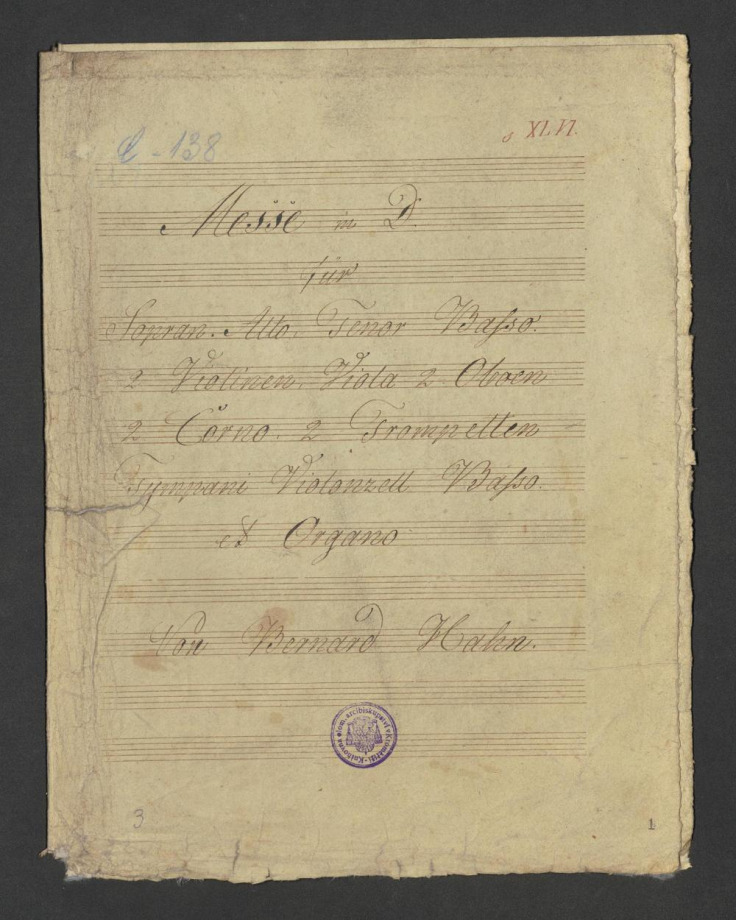 C - 138
XLVI.
Messe in D.
für
Sopran. Alto. Tenor Basso.
2 Violinen. Viola 2 Oboen
2 Corno. 2 Trompetten
Tympani Violonzell Basso.
et Organo
Von Bernard Hahn.
3
1